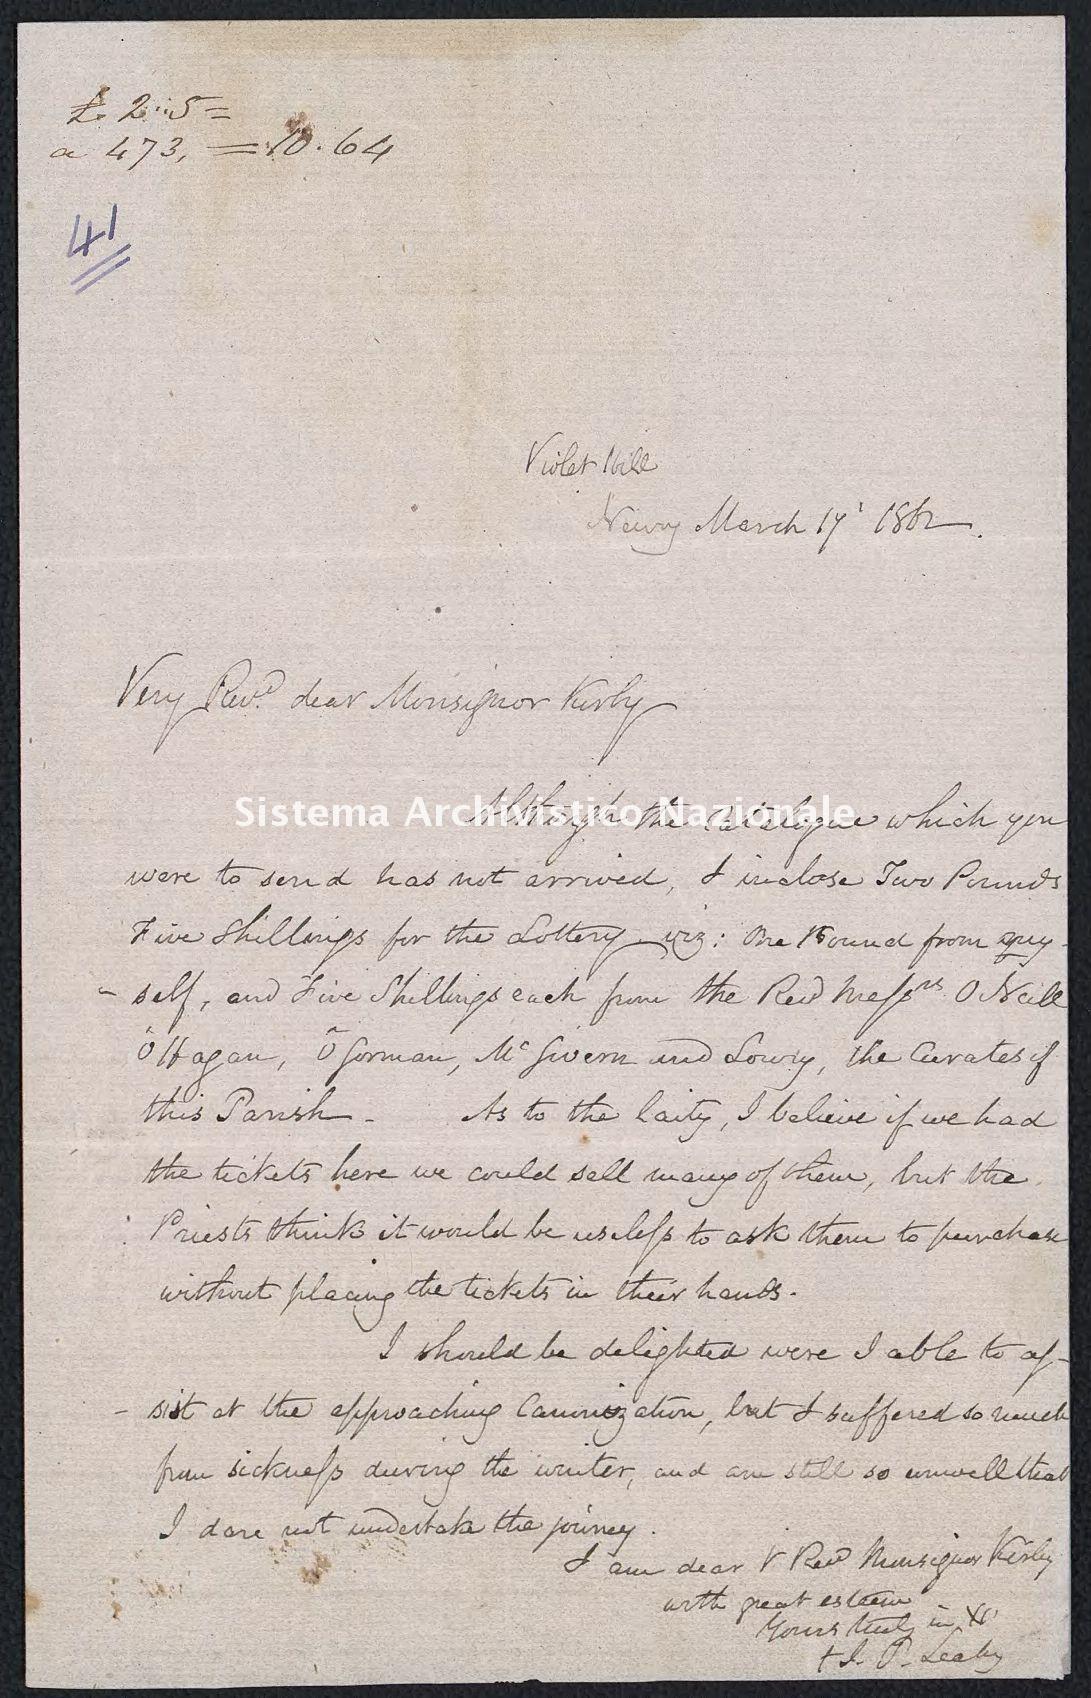 £ 2..5 =
a 473, = 10.64
41
Violet Hill
Newry March 17' 1862.
Very Revd. dear Monsignor Kirby
Although the Catalogue which you
Sistema Archivistico Nazionale
were to send has not arrived, I inclose Two Pounds
Five Shillings for the Lottery - viz: One Pound from my-
- self, and Five Shillings each from the Revd Messrs O'Neill
O'Hagan, O'Gorman, McGivern and Lowry, the Curates of
this Parish - As to the laity, I believe if we had
the tickets here we could sell many of them, but the
Priests think it would be useless to ask them to purchase
without placing the tickets in their hands.
I should be delighted were I able to as-
- sist at the approaching Canonization, but I suffered so much
from sickness during the winter, and am still so unwell that
I dare not undertake the journey.
I am dear V Revd Monsignor Kirby
with great esteem
Yours truly in Xt
+ J. P. Leahy